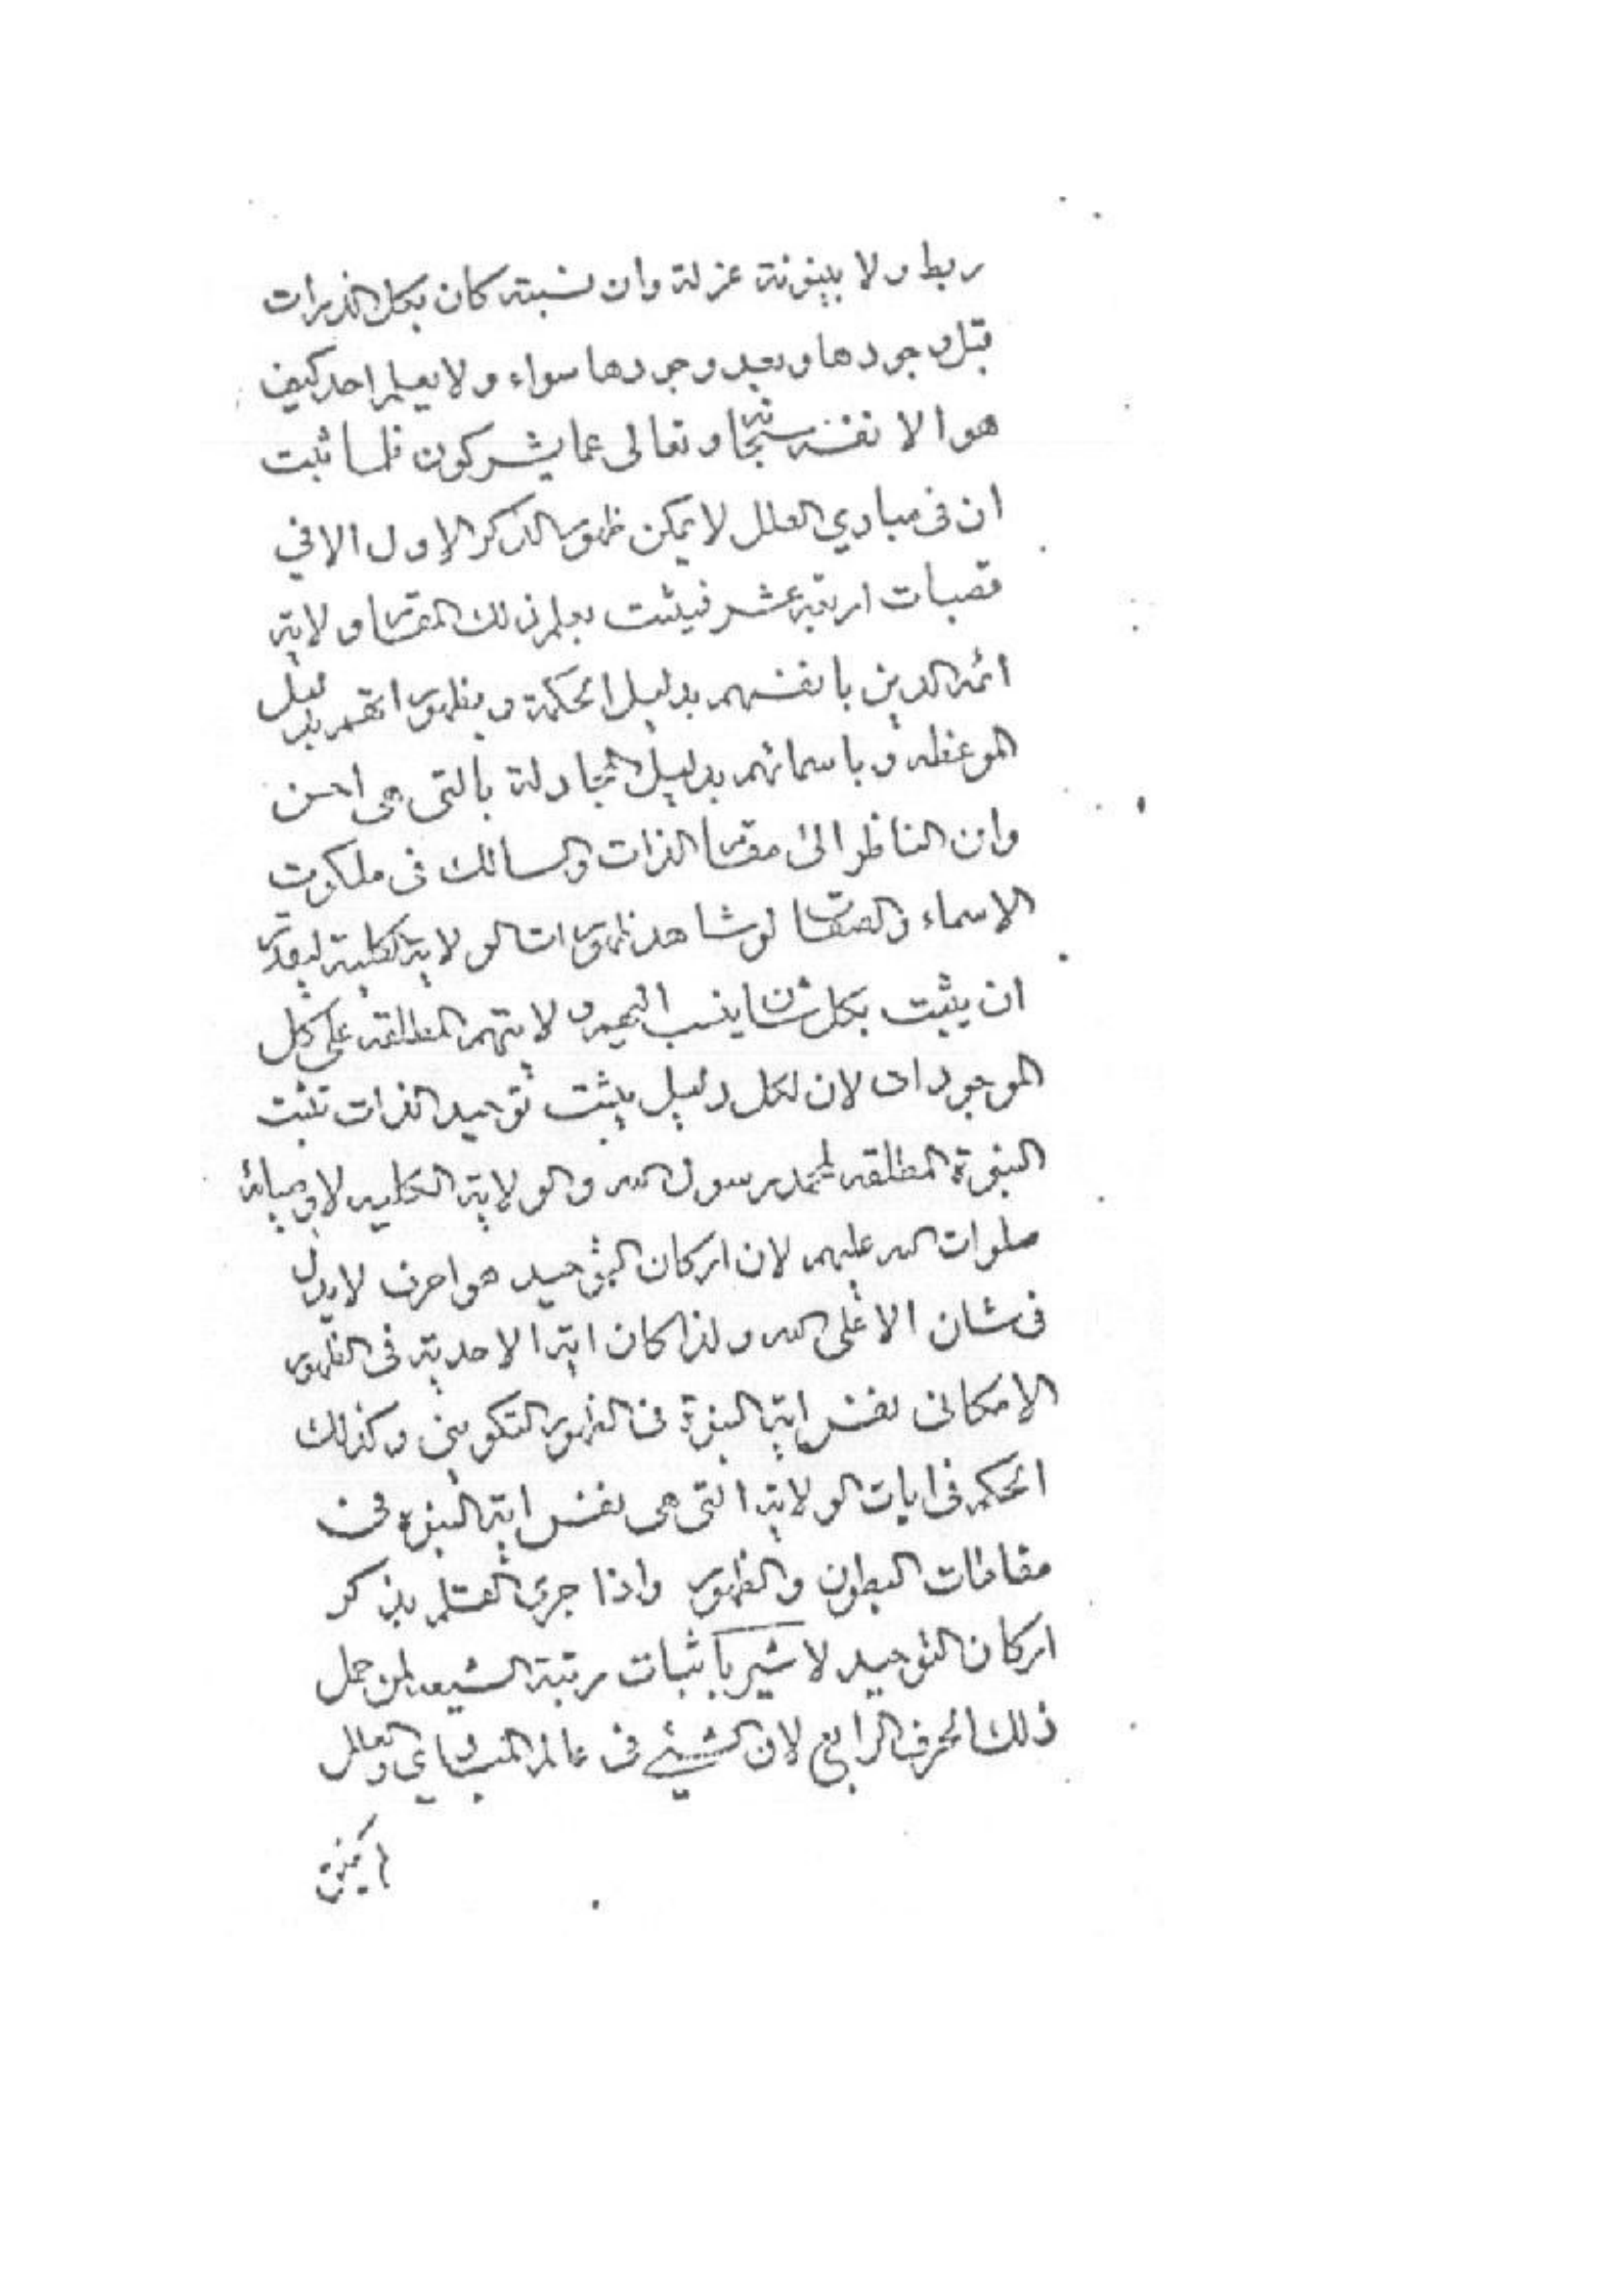 ربط ولا بينونة عزلة وان نسبته كان بكل الذرات
قبل وجودها وبعد وجودها سواء ولا يعلم احد كيف
هو الا نفسه سبحانه وتعالى عما يشركون فلما ثبت
ان فى مبادي العلل لا يمكن ظهور الذكر الاول الا في
قصبات اربعة عشر فيثبت بعلم ذلك المقام ولاية
ائمة الدين بانفسهم بدليل الحكمة وبظهوراتهم بدليل
الموعظه وباسمائهم بدليل المجادلة بالتى هى احسن
وان الناظر الى مقام الذات والسالك فى ملكوت
الاسماء والصفات لو شاهد ظهورات الولاية الكلية ليقدر
ان يثبت بكل شان ينسب اليهم ولايتهم المطلقه على كل
الموجودات لان لكل دليل يثبت توحيد الذات تثبت
النبوة المطلقه لمحمد رسول الله والولاية الكليه لاوصيائه
صلوات الله عليهم لان اركان التوحيد هو احرف لا يدل
فى شان الا على الله ولذا كان اية الاحدية فى الظهور
الامكانى نفس اية النبوة فى الظهور التكوينى وكذلك
الحكم فى ايات الولاية التى هى نفس اية النبوة فى
مقامات البطون والظهور واذا جرى القلم بذكر
اركان التوحيد لاشير باثبات رتبة الشيعه لمن حمل
ذلك الحرف الرابع لان الشيئ فى عالم